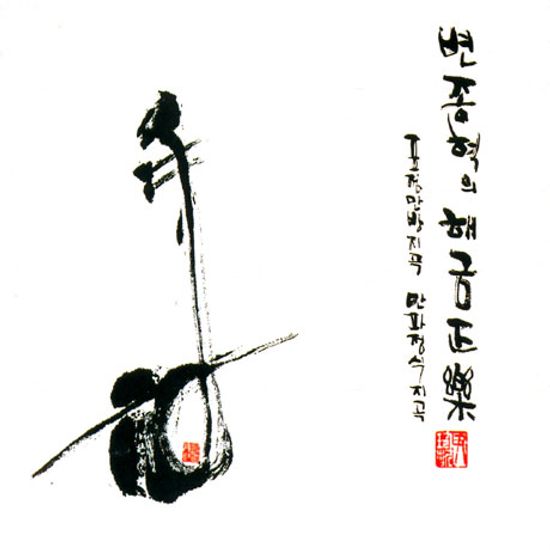 변종혁의 해금正樂
표정만방지곡 만파정식지곡